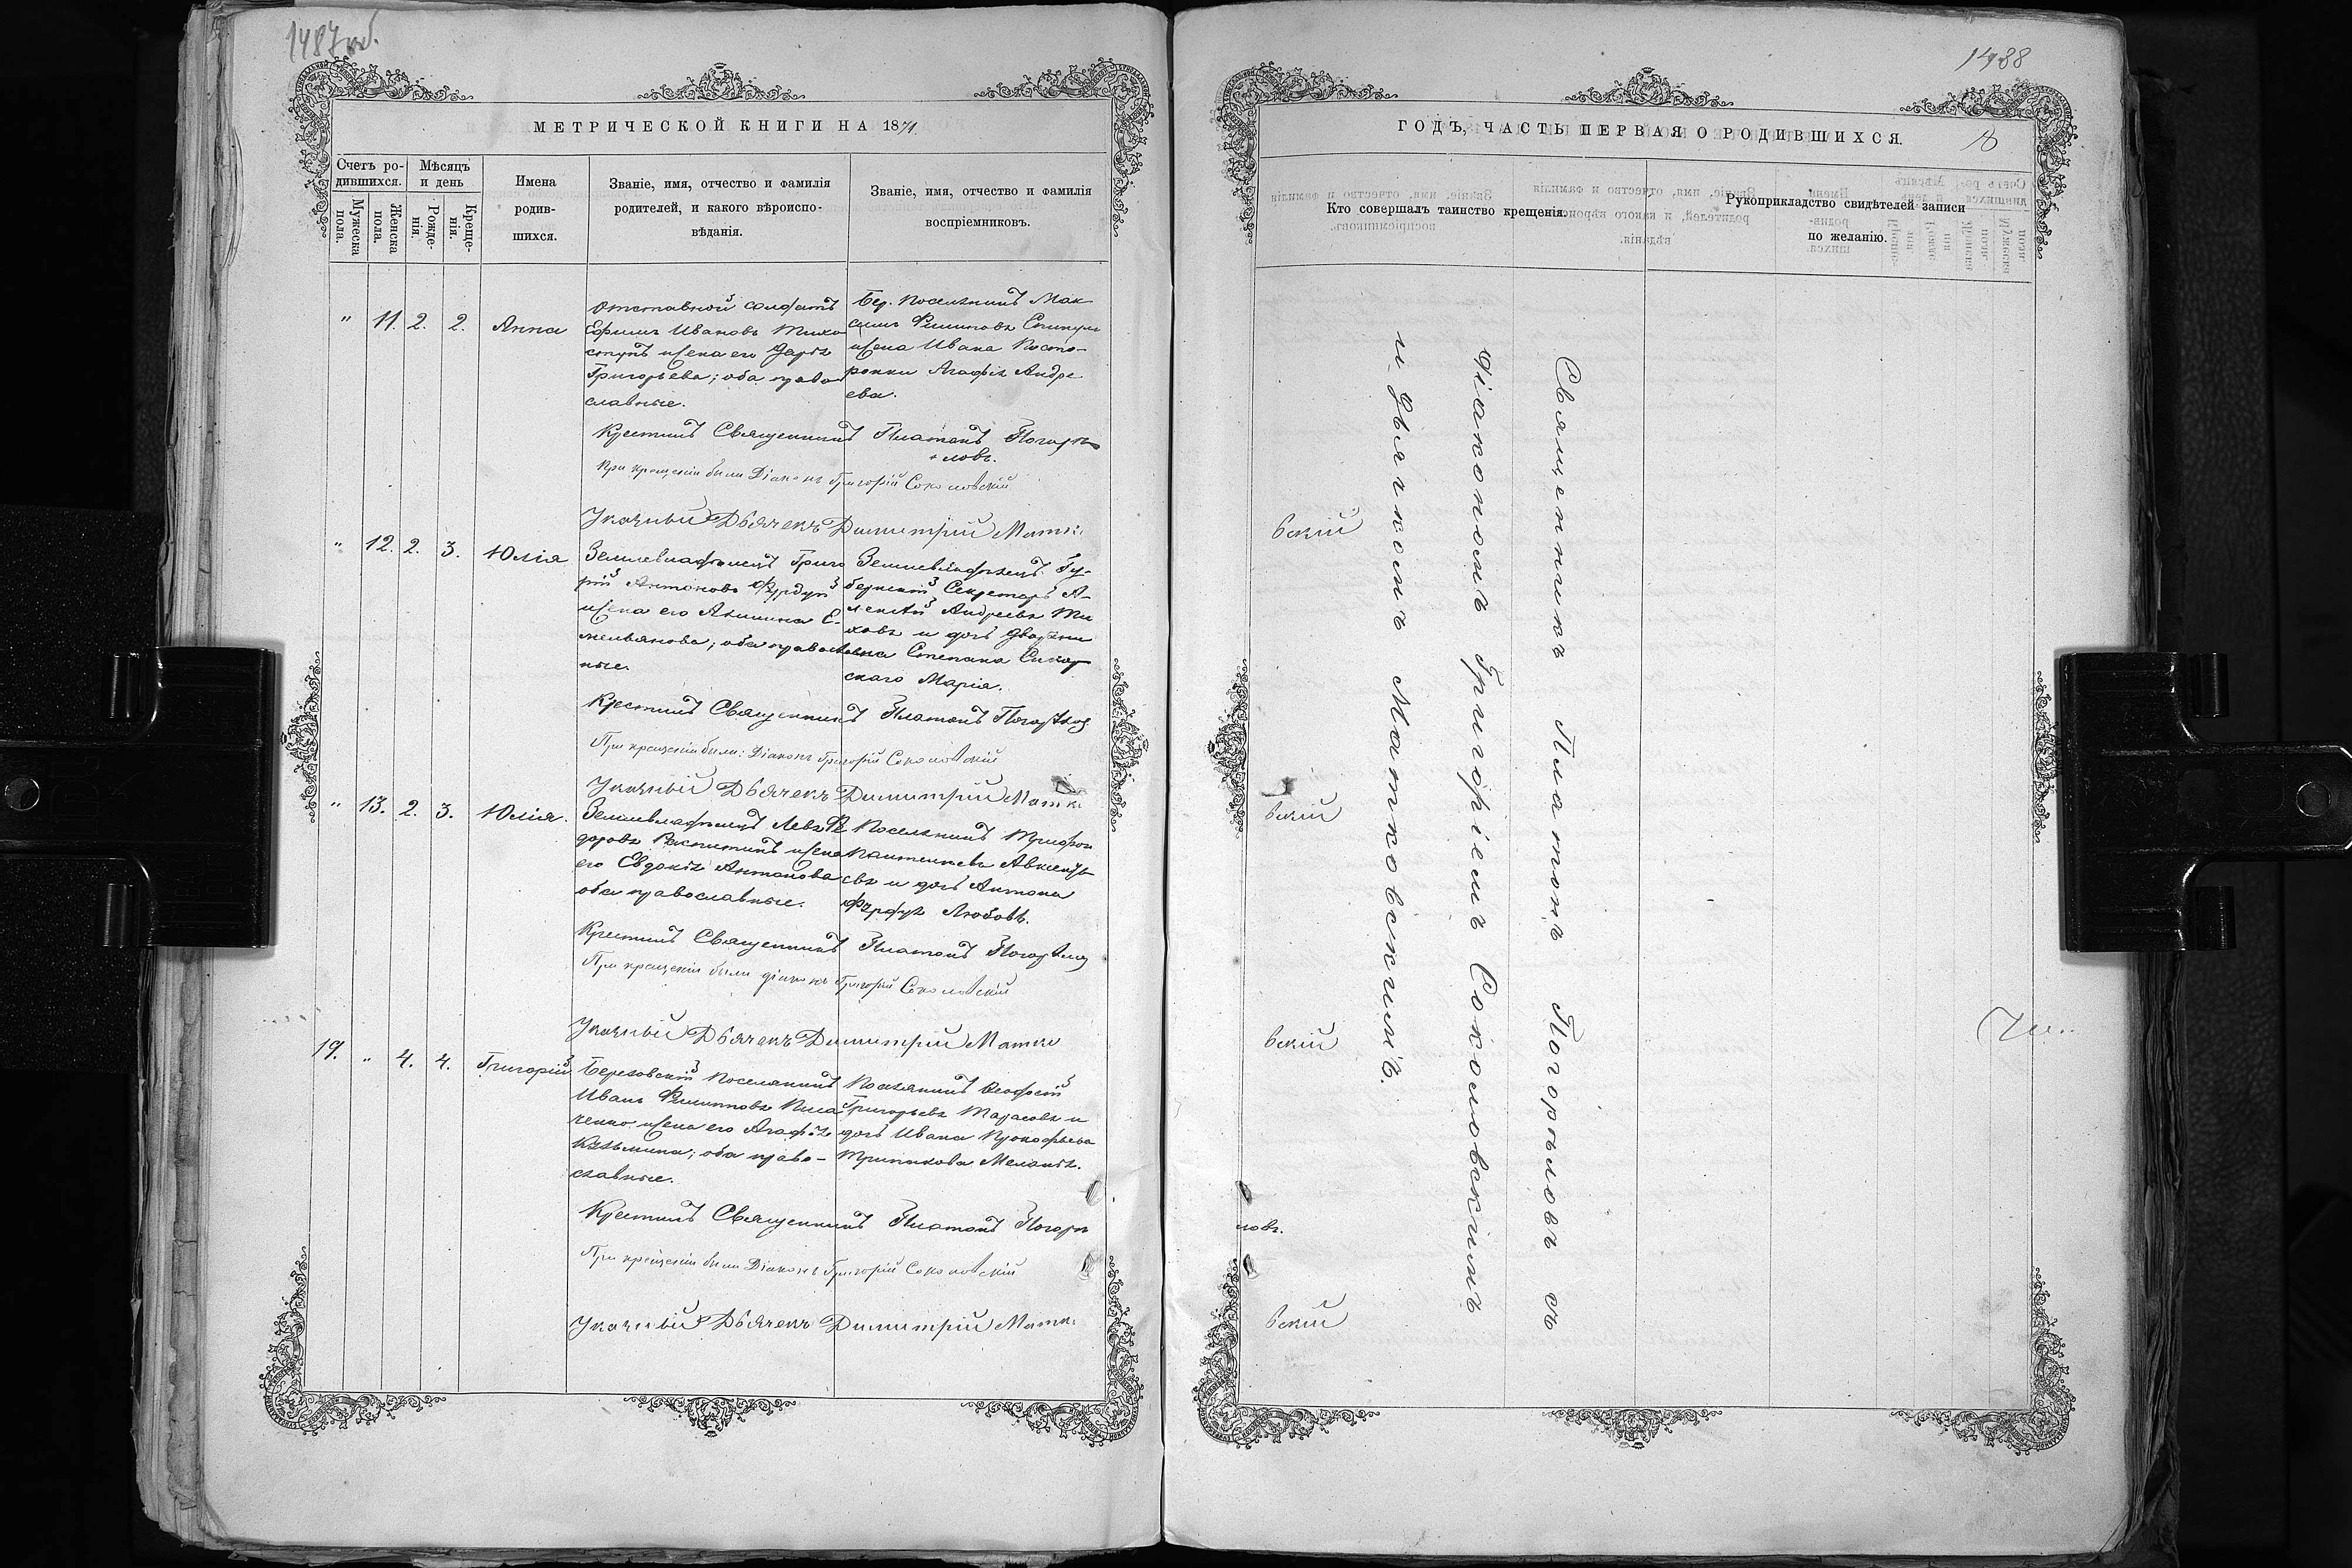 1487 об.
МЕТРИЧЕСКОЙ КНИГИ НА 1871.
Счетъ ро-
дившихся.
Мужеска
пола.
Женска
пола.
Мѣсяцъ
и день
Рожде-
нія.
Креще-
нія.
Имена
родив-
шихся.
Званіе, имя, отчество и фамилія
родителей, и какого вѣроиспо-
вѣданія.
Званіе, имя, отчество и фамилія
воспріемниковъ.
" 11. 2. 2. Анна
Отставной солдатъ
Ефимъ Ивановъ
жена его Дарія
Григорьева; оба право
славные.
Бер. поселянинъ Мак
симъ Филиповъ
жена Ивана
Агафія Андре
ева.
Крестилъ Священникъ Платонъ Погорѣ
ловъ.
При крещеніи были Діаконъ Григорій Соколовскій
Указный Дьячекъ Димитрій Матко
" 12. 2. 3. Юлія
Землевладѣлецъ Григо
рій Антоновъ Фурдуй
жена его Акилина Е-
мельянова; оба православ
ные.
Землевладѣлецъ Гу-
бернскій Секретарь А-
лексѣй Андреевъ
и дочь Дворяни
Степана
скаго Марія.
Крестилъ Священникъ Платонъ Погорѣлов
При крещеніи были: Діаконъ Григорій Соколовскій
Указный Дьячекъ Димитрій Матко
" 13. 2. 3. Юлія.
Землевладѣлецъ Левъ Ѳе
доровъ жена
его Евдокія Антонова
оба православные.
Поселянинъ Трифон
Пантелеевъ
и дочь Антона
Фурдуя Любовь.
Крестилъ Священникъ Платонъ Погорѣлов
При крещеніи были діаконъ Григорій Соколовскій
Указный Дьячекъ Димитрій Матко
19. " 4. 4. Григорій
Березовскій поселянинъ
Иванъ Филипповъ
ченко жена его Агафія
Кузьмина; оба право-
славные.
Поселянинъ Ѳеодосій
Григорьевъ Тарасовъ и
дочь Ивана Прокофьева
Меланія.
Крестилъ Священникъ Платонъ Погорѣ
При крещеніи были Діаконъ Григорій Соколовскій
Указный Дьячекъ Димитрій Матко
1488
ГОДЪ, ЧАСТЬ ПЕРВАЯ О РОДИВШИХСЯ.
Кто совершалъ таинство крещенія.
Рукоприкладство свидѣтелей записи
по желанію.
вскій
вскій
вскій
ловъ.
вскій
Священникъ Платонъ Погорѣловъ съ
Діакономъ Григоріемъ Соколовскимъ
и Дьячкомъ Матковскимъ.